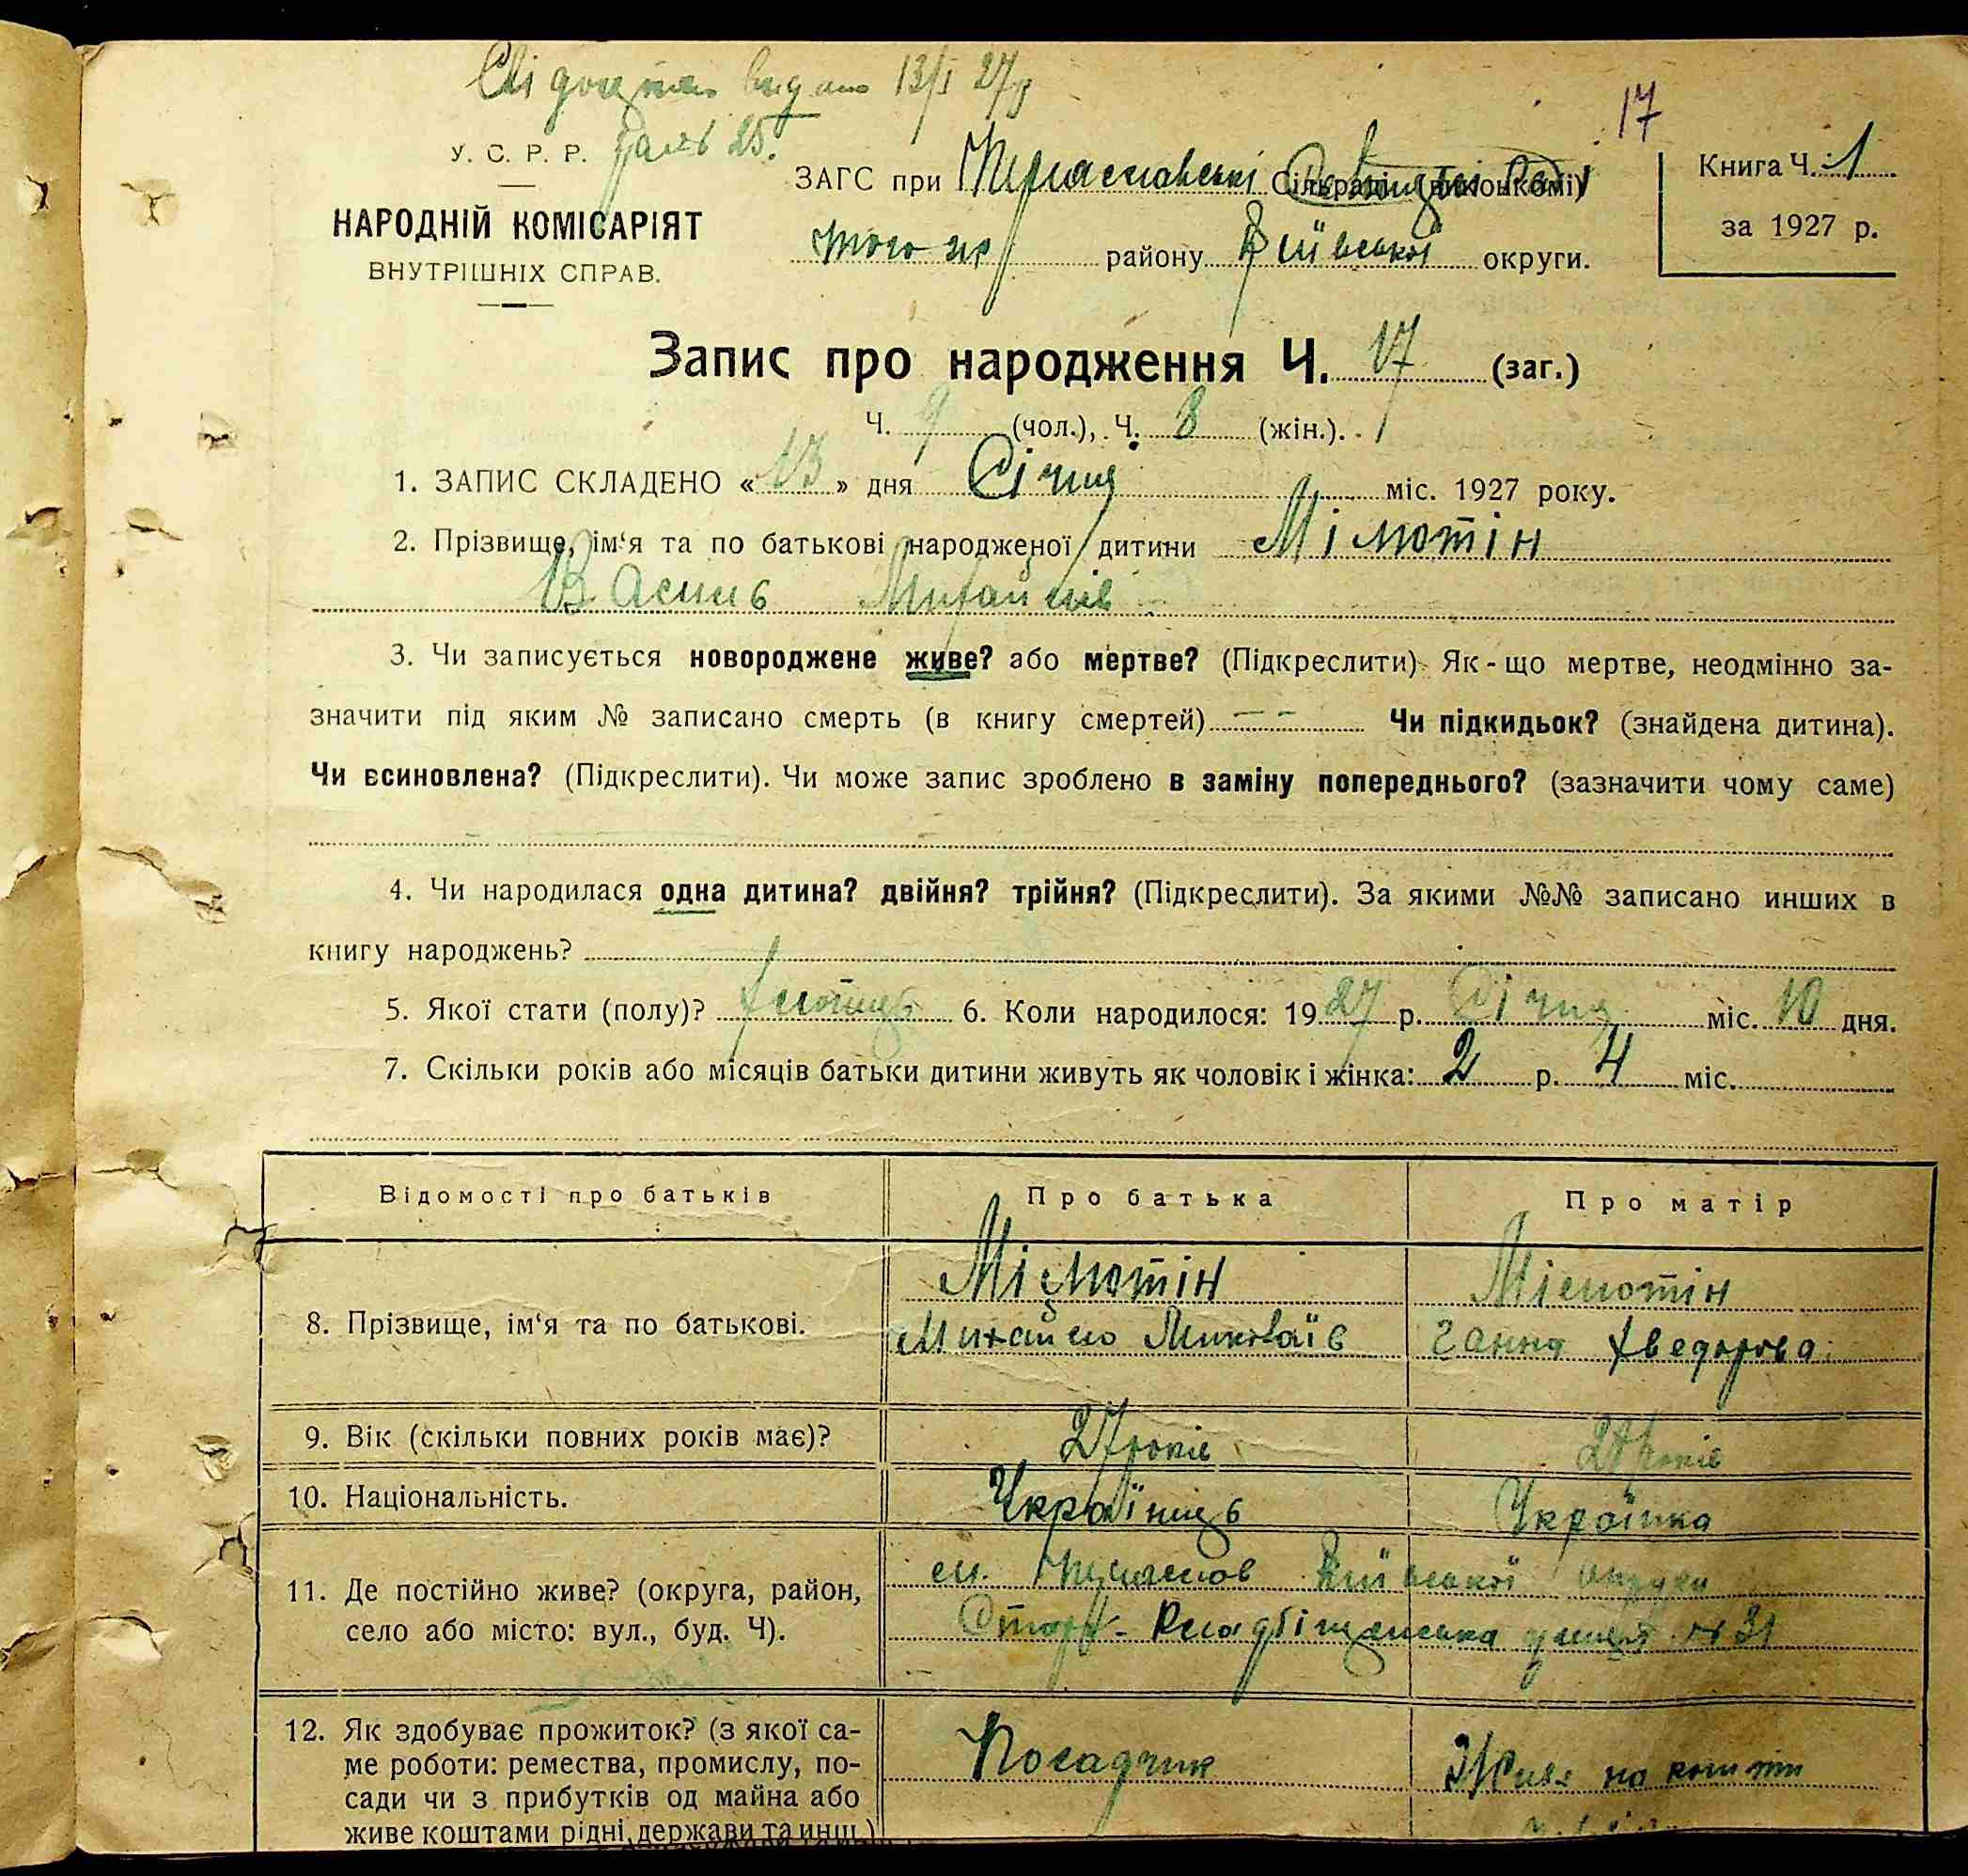 видано 13/I 27р
17
У. С. Р. Р.
ЗАГС при Сільраді (виконкомі)
Книга Ч. 1
НАРОДНІЙ КОМІСАРІЯТ
того ж району Київської округи.
за 1927 р.
ВНУТРІШНІХ СПРАВ.
Запис про народження Ч. 17 (заг.)
Ч. 9 (чол.), Ч. 8 (жін.).
1. ЗАПИС СКЛАДЕНО «13» дня Січня міс. 1927 року.
2. Прізвище, ім‘я та по батькові народженої дитини Мілютін
Василь Михайлів
3. Чи записується новороджене живе? або мертве? (Підкреслити). Як-що мертве, неодмінно за-
значити під яким № записано смерть (в книгу смертей) — — Чи підкидьок? (знайдена дитина).
Чи всиновлена? (Підкреслити). Чи може запис зроблено в заміну попереднього? (зазначити чому саме)
4. Чи народилася одна дитина? двійня? трійня? (Підкреслити). За якими №№ записано инших в
книгу народжень?
5. Якої стати (полу)? хлопець 6. Коли народилося: 1927 р. Січня міс. 10 дня.
7. Скільки років або місяців батьки дитини живуть як чоловік і жінка: 2 р. 4 міс.
Відомості про батьків Про батька Про матір
8. Прізвище, ім‘я та по батькові.
Мілютін
Михайло Миколаїв
Мілютін
Ганна Хведорова
9. Вік (скільки повних років має)? 27 років років
10. Національність. Українець Українка
11. Де постійно живе? (округа, район,
село або місто: вул., буд. Ч).
м. Київської округи
улиця № 31
12. Як здобуває прожиток? (з якої са-
ме роботи: ремества, промислу, по-
сади чи з прибутків од майна або
живе коштами рідні, держави та инш.)
Посадчик
Живе на кошти